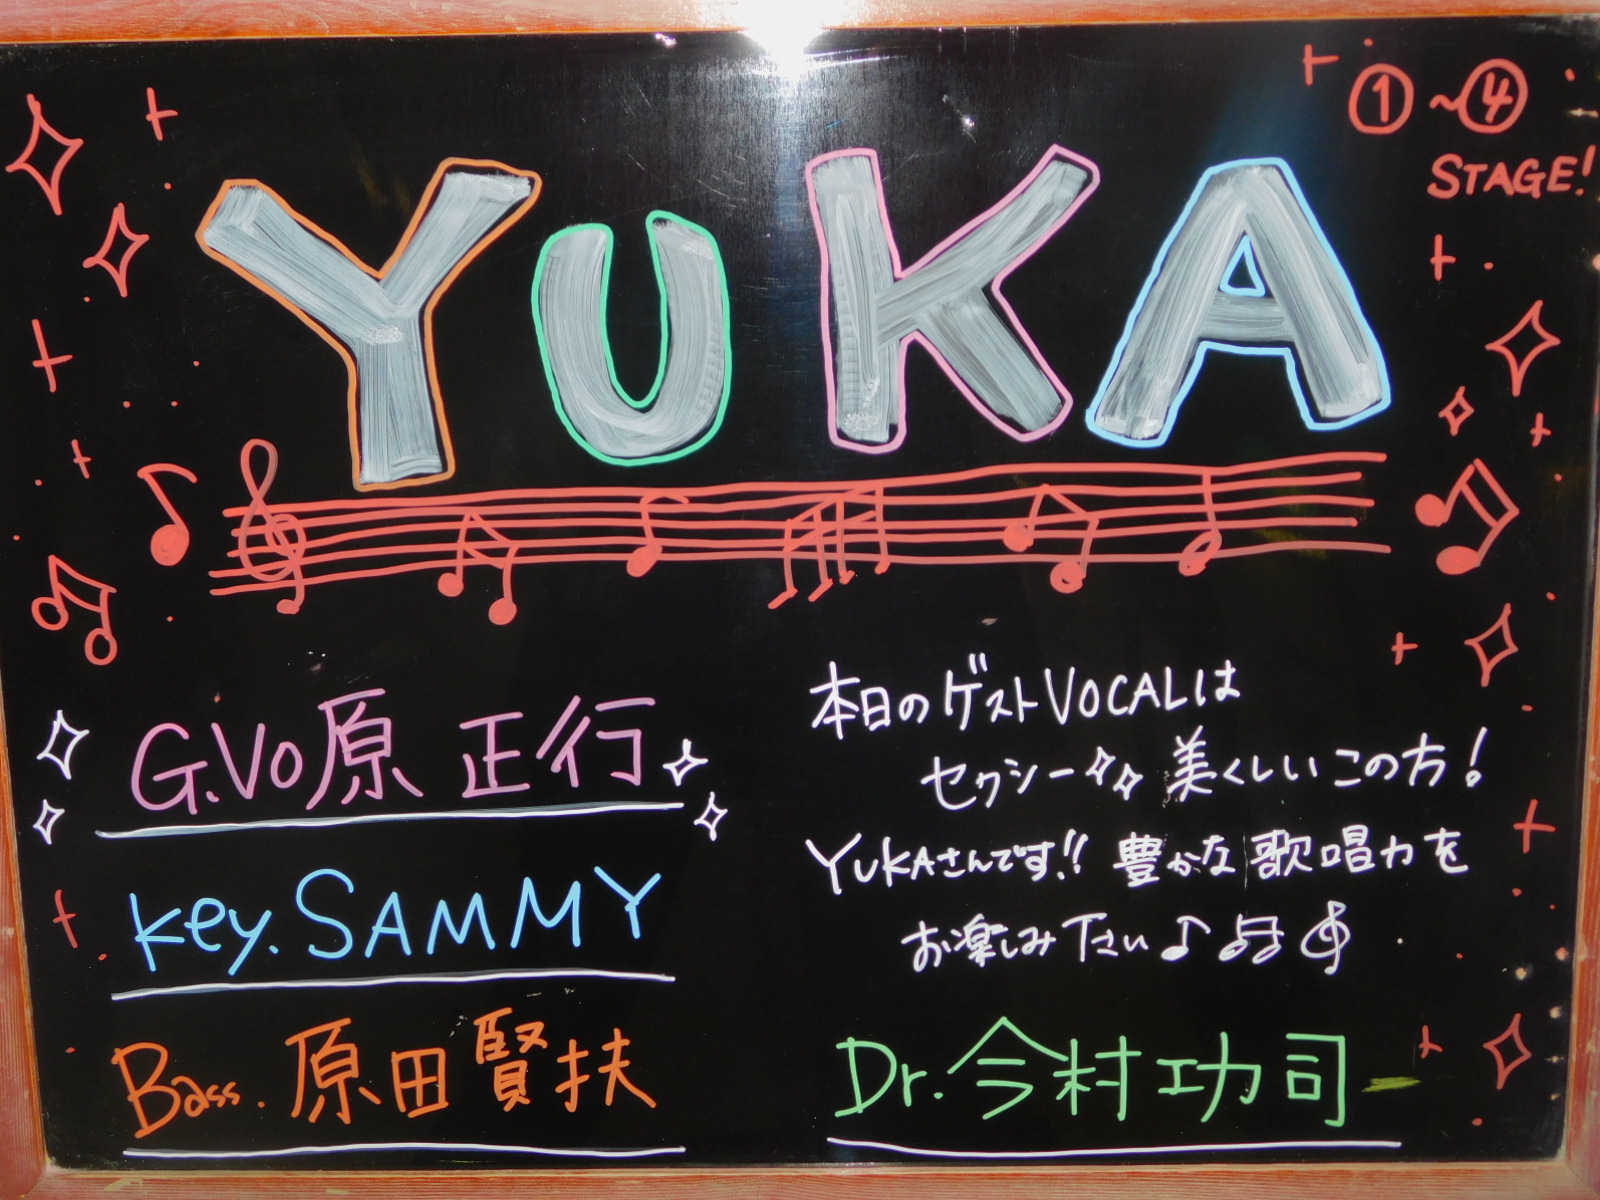 ①~④
STAGE!
YUKA
G.Vo原 正行
key.SAMMY
Bass.原田賢扶
本日のゲストVOCALは
セクシー美くしいこの方!
YUKAさんです!!豊かな歌唱力を
お楽しみ下さい♪
Dr.今村功司